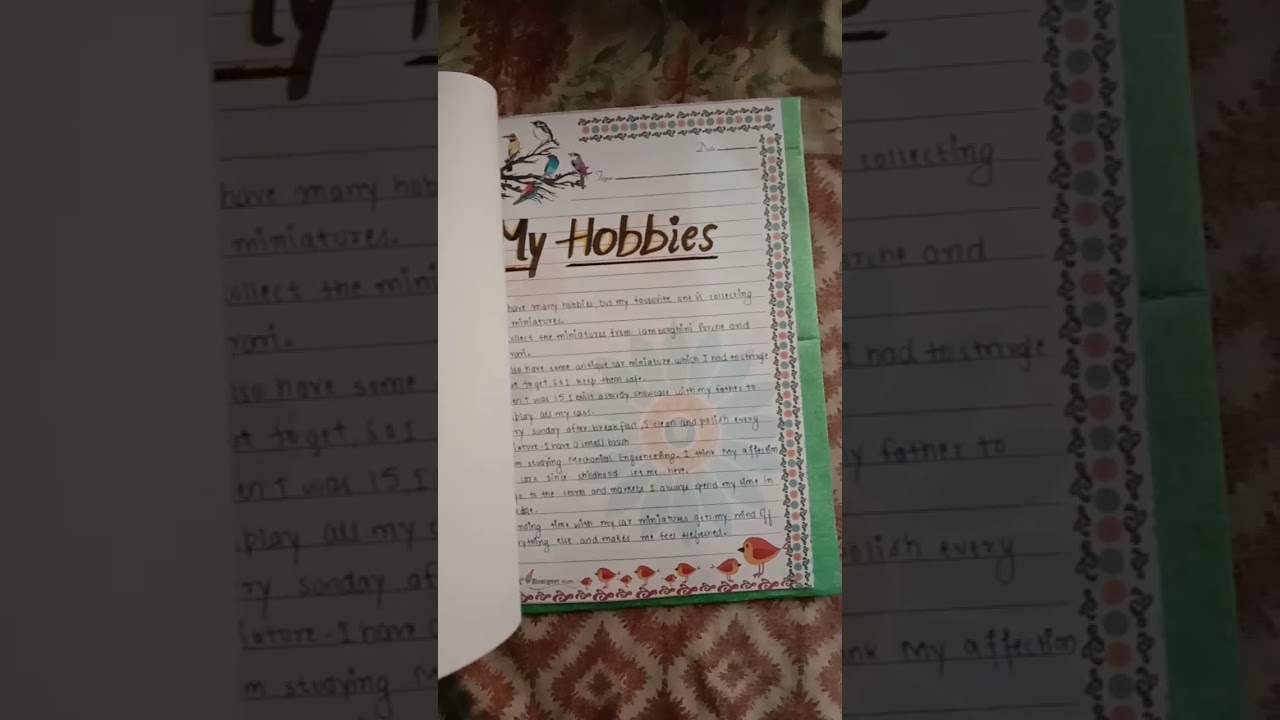 Date
Topic
My Hobbies
have many hobbies, but my favourite one is collecting
miniatures.
ollect the miniatures from lamborghini Porche and
lso have some antique car miniature which I had to struggle
to get, so I keep them safe.
en I was 15, I built a showcase with my father to
play all my cars.
ry sunday after breakfast, I clean and polish every
iature. I have a small brush
m studying Mechanical Engeeneering. I think my affection
cars since childhood let me here.
to the stores and markets I always spend my time in
nding time with my car miniatures gets my mind off
rything else and makes me feel refreshed.